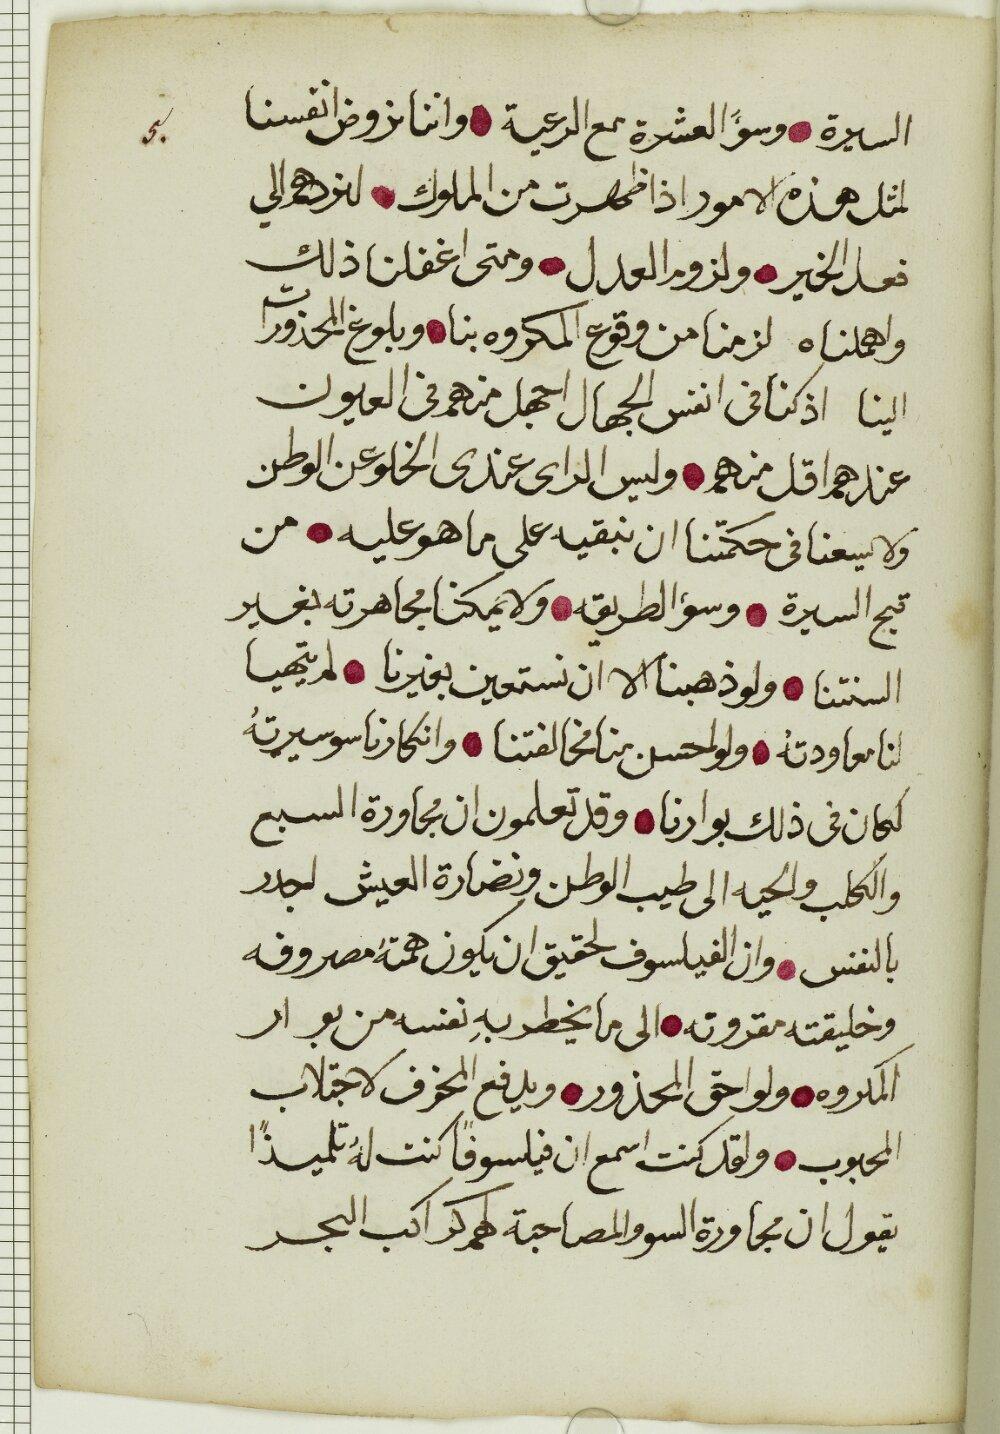 السيرة • وسوٓء العشرة مع الرعية • واننا نروض انفسنا
لمثل هذه الامور اذا ظهرت من الملوك • لنردهم الي
فعل الخير • ولزوم العدل • ومتى اغفلنا ذلك
واهملناه لزمنا من وقوع المكروه بنا • وبلوغ المحذورات
الينا اذ كنا فى انفس الجهال اجهل منهم فى العيون
عندهم اقل منهم • وليس الراى عندى الخلو عن الوطن
ولا يسعنا فى حكمتنا ان نبقيه على ما هو عليه • من
قبح السيرة • وسؤ الطريقه • ولا يمكننا مجاهرته بغير
السنتنا • ولو ذهبنا الا ان نستعين بغيرنا • لم يتهيا
لنا معاودتهُ • ولو احسن منا مخالفتنا • وانكارنا سو سيرتهُ
لكان فى ذلك بوارنا • وقد تعلمون ان مجاورة السبع
والكلب والحيه الى طيب الوطن ونضارة العيش لغدر
بالنفس • وان الفيلسوف لحقيق ان يكون همتهُ مصروفه
وخليقته مقرونه • الى ما يخطر بهِ نفسه من بوار
المكروه • ولواحق المحذور • ويدفع المخوف لاجتلاب
المحبوب • ولقد كنت اسمع ان فيلسوفًا كنت لهُ تلميذًا
يقول ان مجاورة السو والمصاحبة لهم كراكب البحر